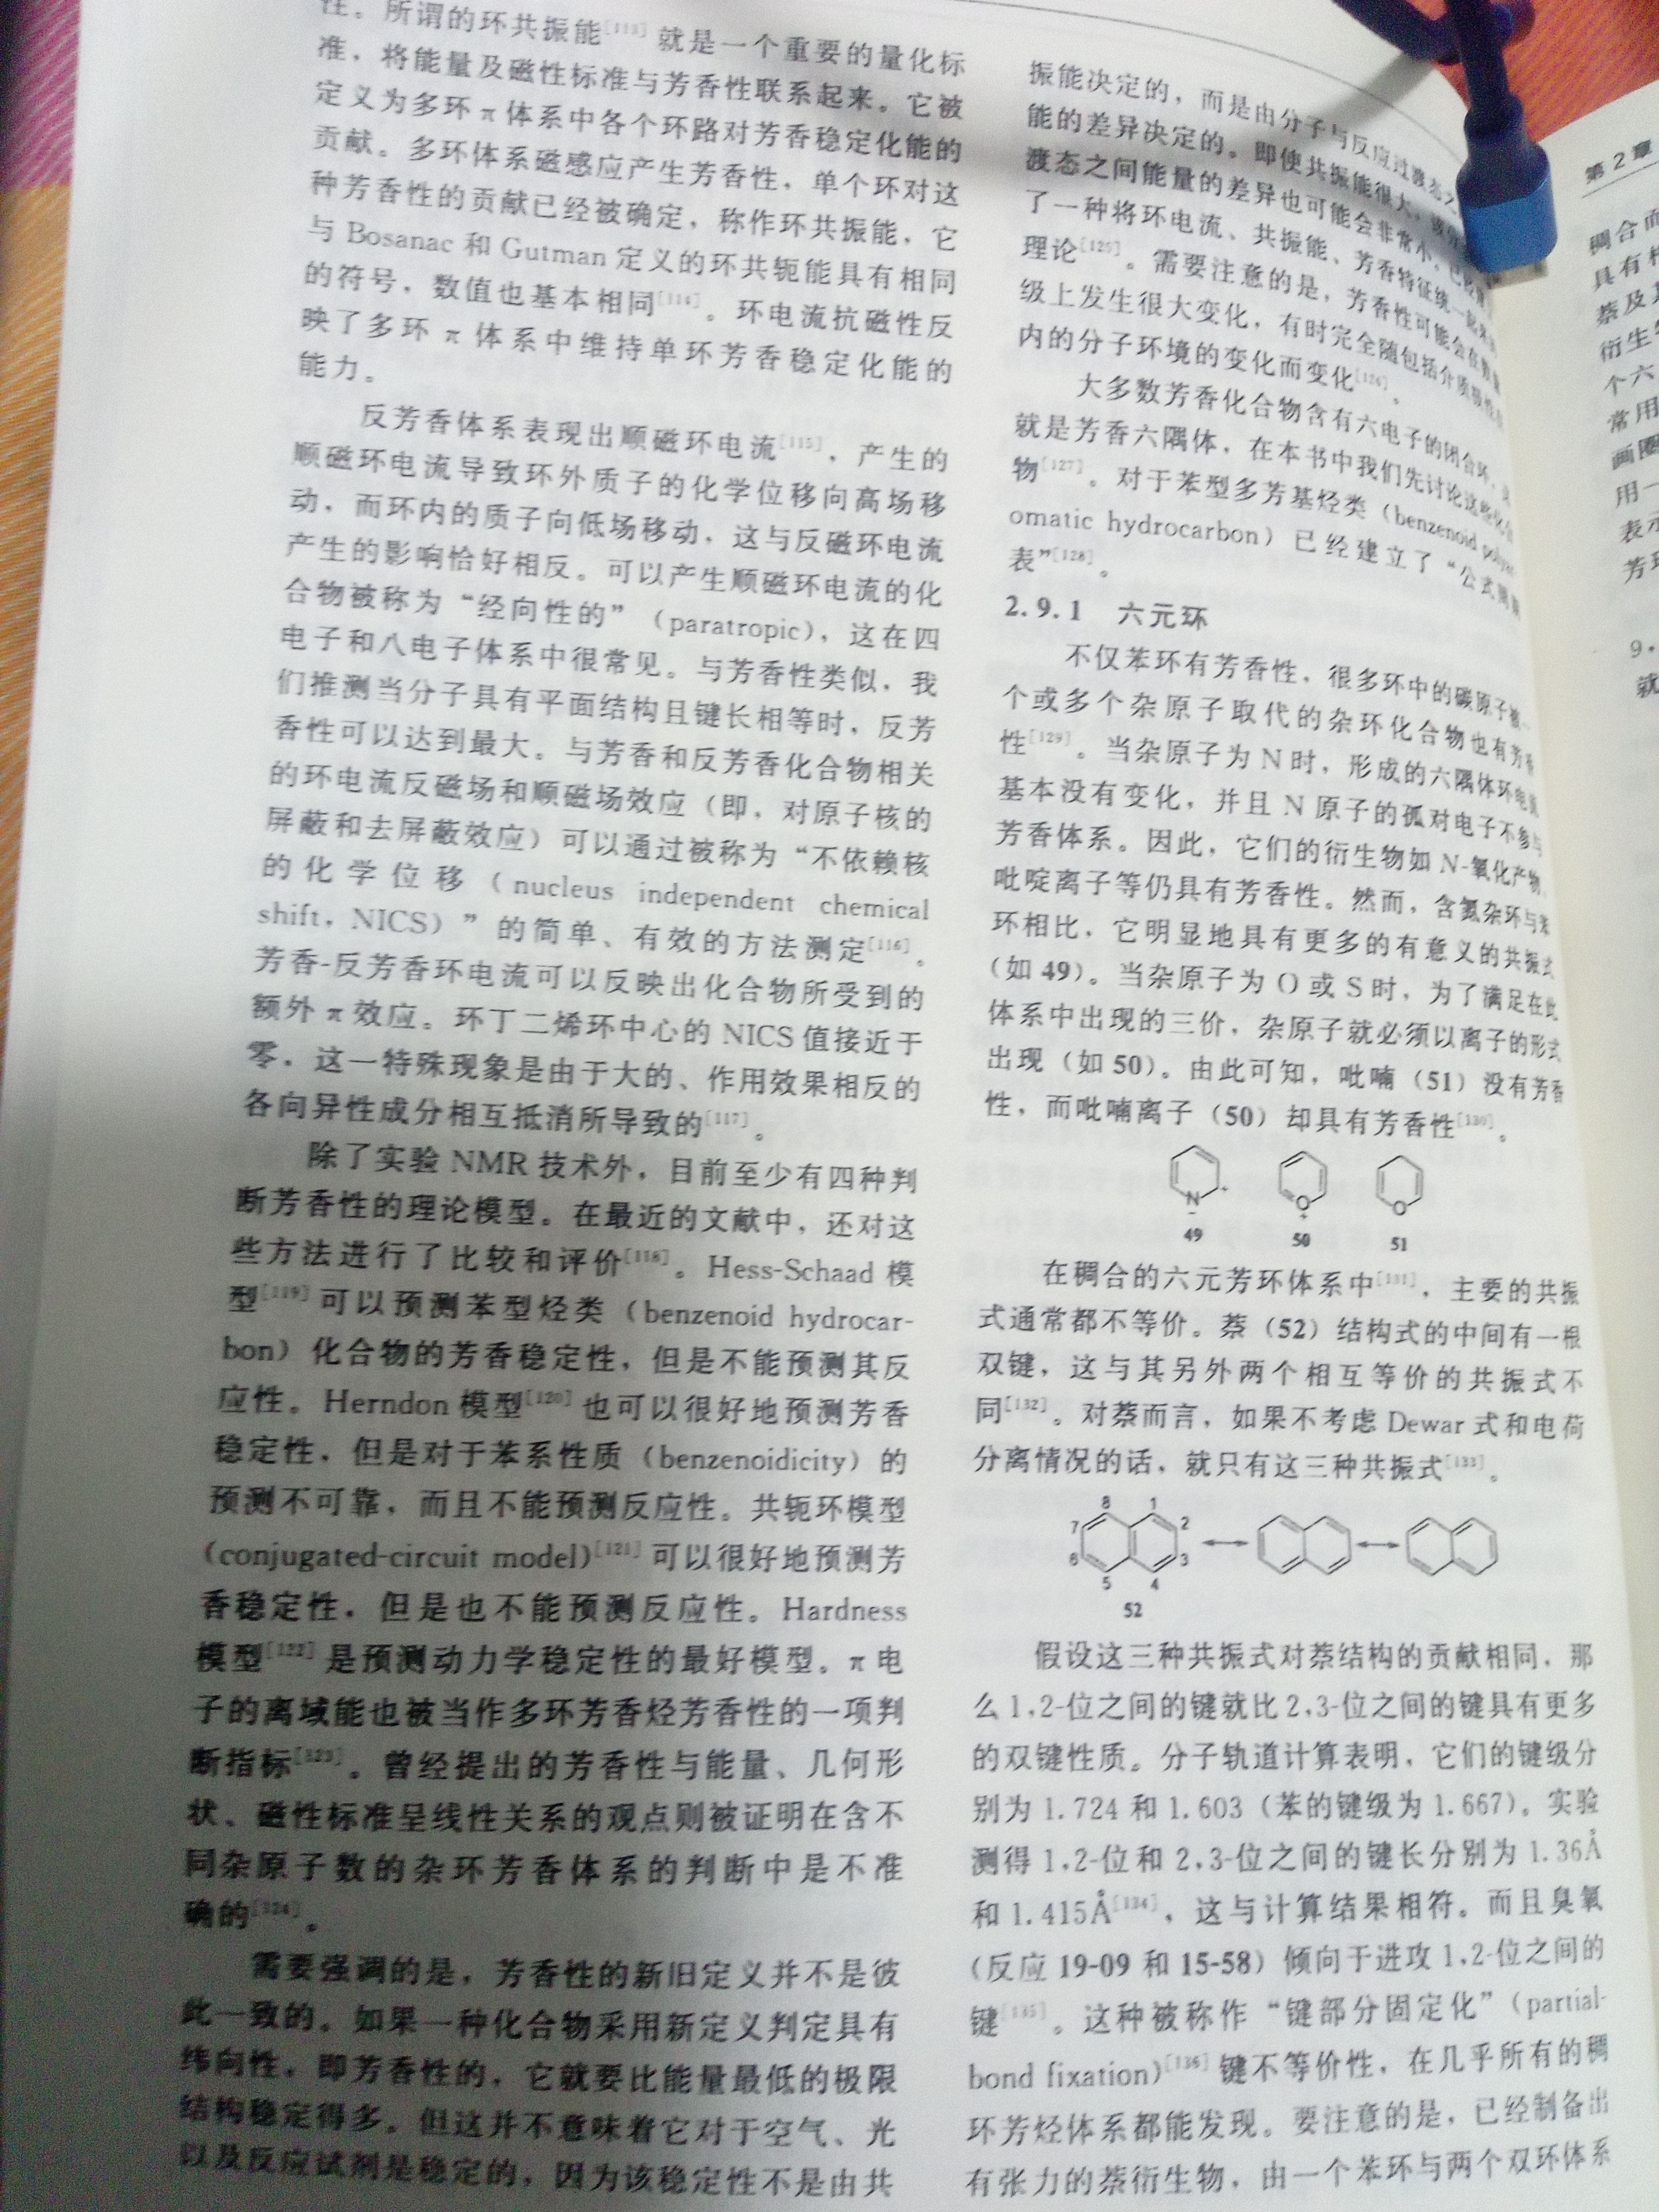 性。所谓的环共振能[113]就是一个重要的量化标
准，将能量及磁性标准与芳香性联系起来。它被
定义为多环 π 体系中各个环路对芳香稳定化能的
贡献。多环体系磁感应产生芳香性，单个环对这
种芳香性的贡献已经被确定，称作环共振能，它
与 Bosanac 和 Gutman 定义的环共轭能具有相同
的符号，数值也基本相同[114]。环电流抗磁性反
映了多环 π 体系中维持单环芳香稳定化能的
能力。
反芳香体系表现出顺磁环电流[115]，产生的
顺磁环电流导致环外质子的化学位移向高场移
动，而环内的质子向低场移动，这与反磁环电流
产生的影响恰好相反。可以产生顺磁环电流的化
合物被称为“经向性的”（paratropic），这在四
电子和八电子体系中很常见。与芳香性类似，我
们推测当分子具有平面结构且键长相等时，反芳
香性可以达到最大。与芳香和反芳香化合物相关
的环电流反磁场和顺磁场效应（即，对原子核的
屏蔽和去屏蔽效应）可以通过被称为“不依赖核
的化学位移（nucleus independent chemical
shift，NICS）”的简单、有效的方法测定[116]。
芳香-反芳香环电流可以反映出化合物所受到的
额外 π 效应。环丁二烯环中心的 NICS 值接近于
零，这一特殊现象是由于大的、作用效果相反的
各向异性成分相互抵消所导致的[117]。
除了实验 NMR 技术外，目前至少有四种判
断芳香性的理论模型。在最近的文献中，还对这
些方法进行了比较和评价[118]。Hess-Schaad 模
型[119]可以预测苯型烃类（benzenoid hydrocar-
bon）化合物的芳香稳定性，但是不能预测其反
应性。Herndon 模型[120]也可以很好地预测芳香
稳定性，但是对于苯系性质（benzenoidicity）的
预测不可靠，而且不能预测反应性。共轭环模型
(conjugated-circuit model)[121]可以很好地预测芳
香稳定性，但是也不能预测反应性。Hardness
模型[122]是预测动力学稳定性的最好模型。π 电
子的离域能也被当作多环芳香烃芳香性的一项判
断指标[123]。曾经提出的芳香性与能量、几何形
状、磁性标准呈线性关系的观点则被证明在含不
同杂原子数的杂环芳香体系的判断中是不准
确的[124]。
需要强调的是，芳香性的新旧定义并不是彼
此一致的。如果一种化合物采用新定义判定具有
纬向性，即芳香性的，它就要比能量最低的极限
结构稳定得多。但这并不意味着它对于空气、光
以及反应试剂是稳定的，因为该稳定性不是由共
振能决定的，而是由分子与反应过渡态之
能的差异决定的。即使共振能很大，
渡态之间能量的差异也可能会非常小。
了一种将环电流、共振能、芳香特征统一起来
理论[125]。需要注意的是，芳香性可能会在数量
级上发生很大变化，有时完全随包括介质极性在
内的分子环境的变化而变化[126]。
大多数芳香化合物含有六电子的闭合环，
就是芳香六隅体，在本书中我们先讨论这些化合
物[127]。对于苯型多芳基烃类（benzenoid
omatic hydrocarbon）已经建立了“公式周期
表”[128]。
2.9.1 六元环
不仅苯环有芳香性，很多环中的碳原子被一
个或多个杂原子取代的杂环化合物也有芳香
性[129]。当杂原子为 N 时，形成的六隅体环电流
基本没有变化，并且 N 原子的孤对电子不参与
芳香体系。因此，它们的衍生物如 N-氧化产物、
吡啶离子等仍具有芳香性。然而，含氮杂环与苯
环相比，它明显地具有更多的有意义的共振式
（如 49）。当杂原子为 O 或 S 时，为了满足在此
体系中出现的三价，杂原子就必须以离子的形式
出现（如 50）。由此可知，吡喃（51）没有芳香
性，而吡喃离子（50）却具有芳香性[130]。
N - + O + O
49 50 51
在稠合的六元芳环体系中[131]，主要的共振
式通常都不等价。萘（52）结构式的中间有一根
双键，这与其另外两个相互等价的共振式不
同[132]。对萘而言，如果不考虑 Dewar 式和电荷
分离情况的话，就只有这三种共振式[133]。
8 1
7 2
6 3
5 4
52
假设这三种共振式对萘结构的贡献相同，那
么 1,2-位之间的键就比 2,3-位之间的键具有更多
的双键性质。分子轨道计算表明，它们的键级分
别为 1.724 和 1.603（苯的键级为 1.667）。实验
测得 1,2-位和 2,3-位之间的键长分别为 1.36Å
和 1.415Å[134]，这与计算结果相符。而且臭氧
（反应 19-09 和 15-58）倾向于进攻 1,2-位之间的
键[135]。这种被称作“键部分固定化”（partial-
bond fixation)[136]键不等价性，在几乎所有的稠
环芳烃体系都能发现。要注意的是，已经制备出
有张力的萘衍生物，由一个苯环与两个双环体系
第 2 章
稠合而
具有
萘及
衍生
个六
常用
画圈
用一
表示
芳环
9,
就